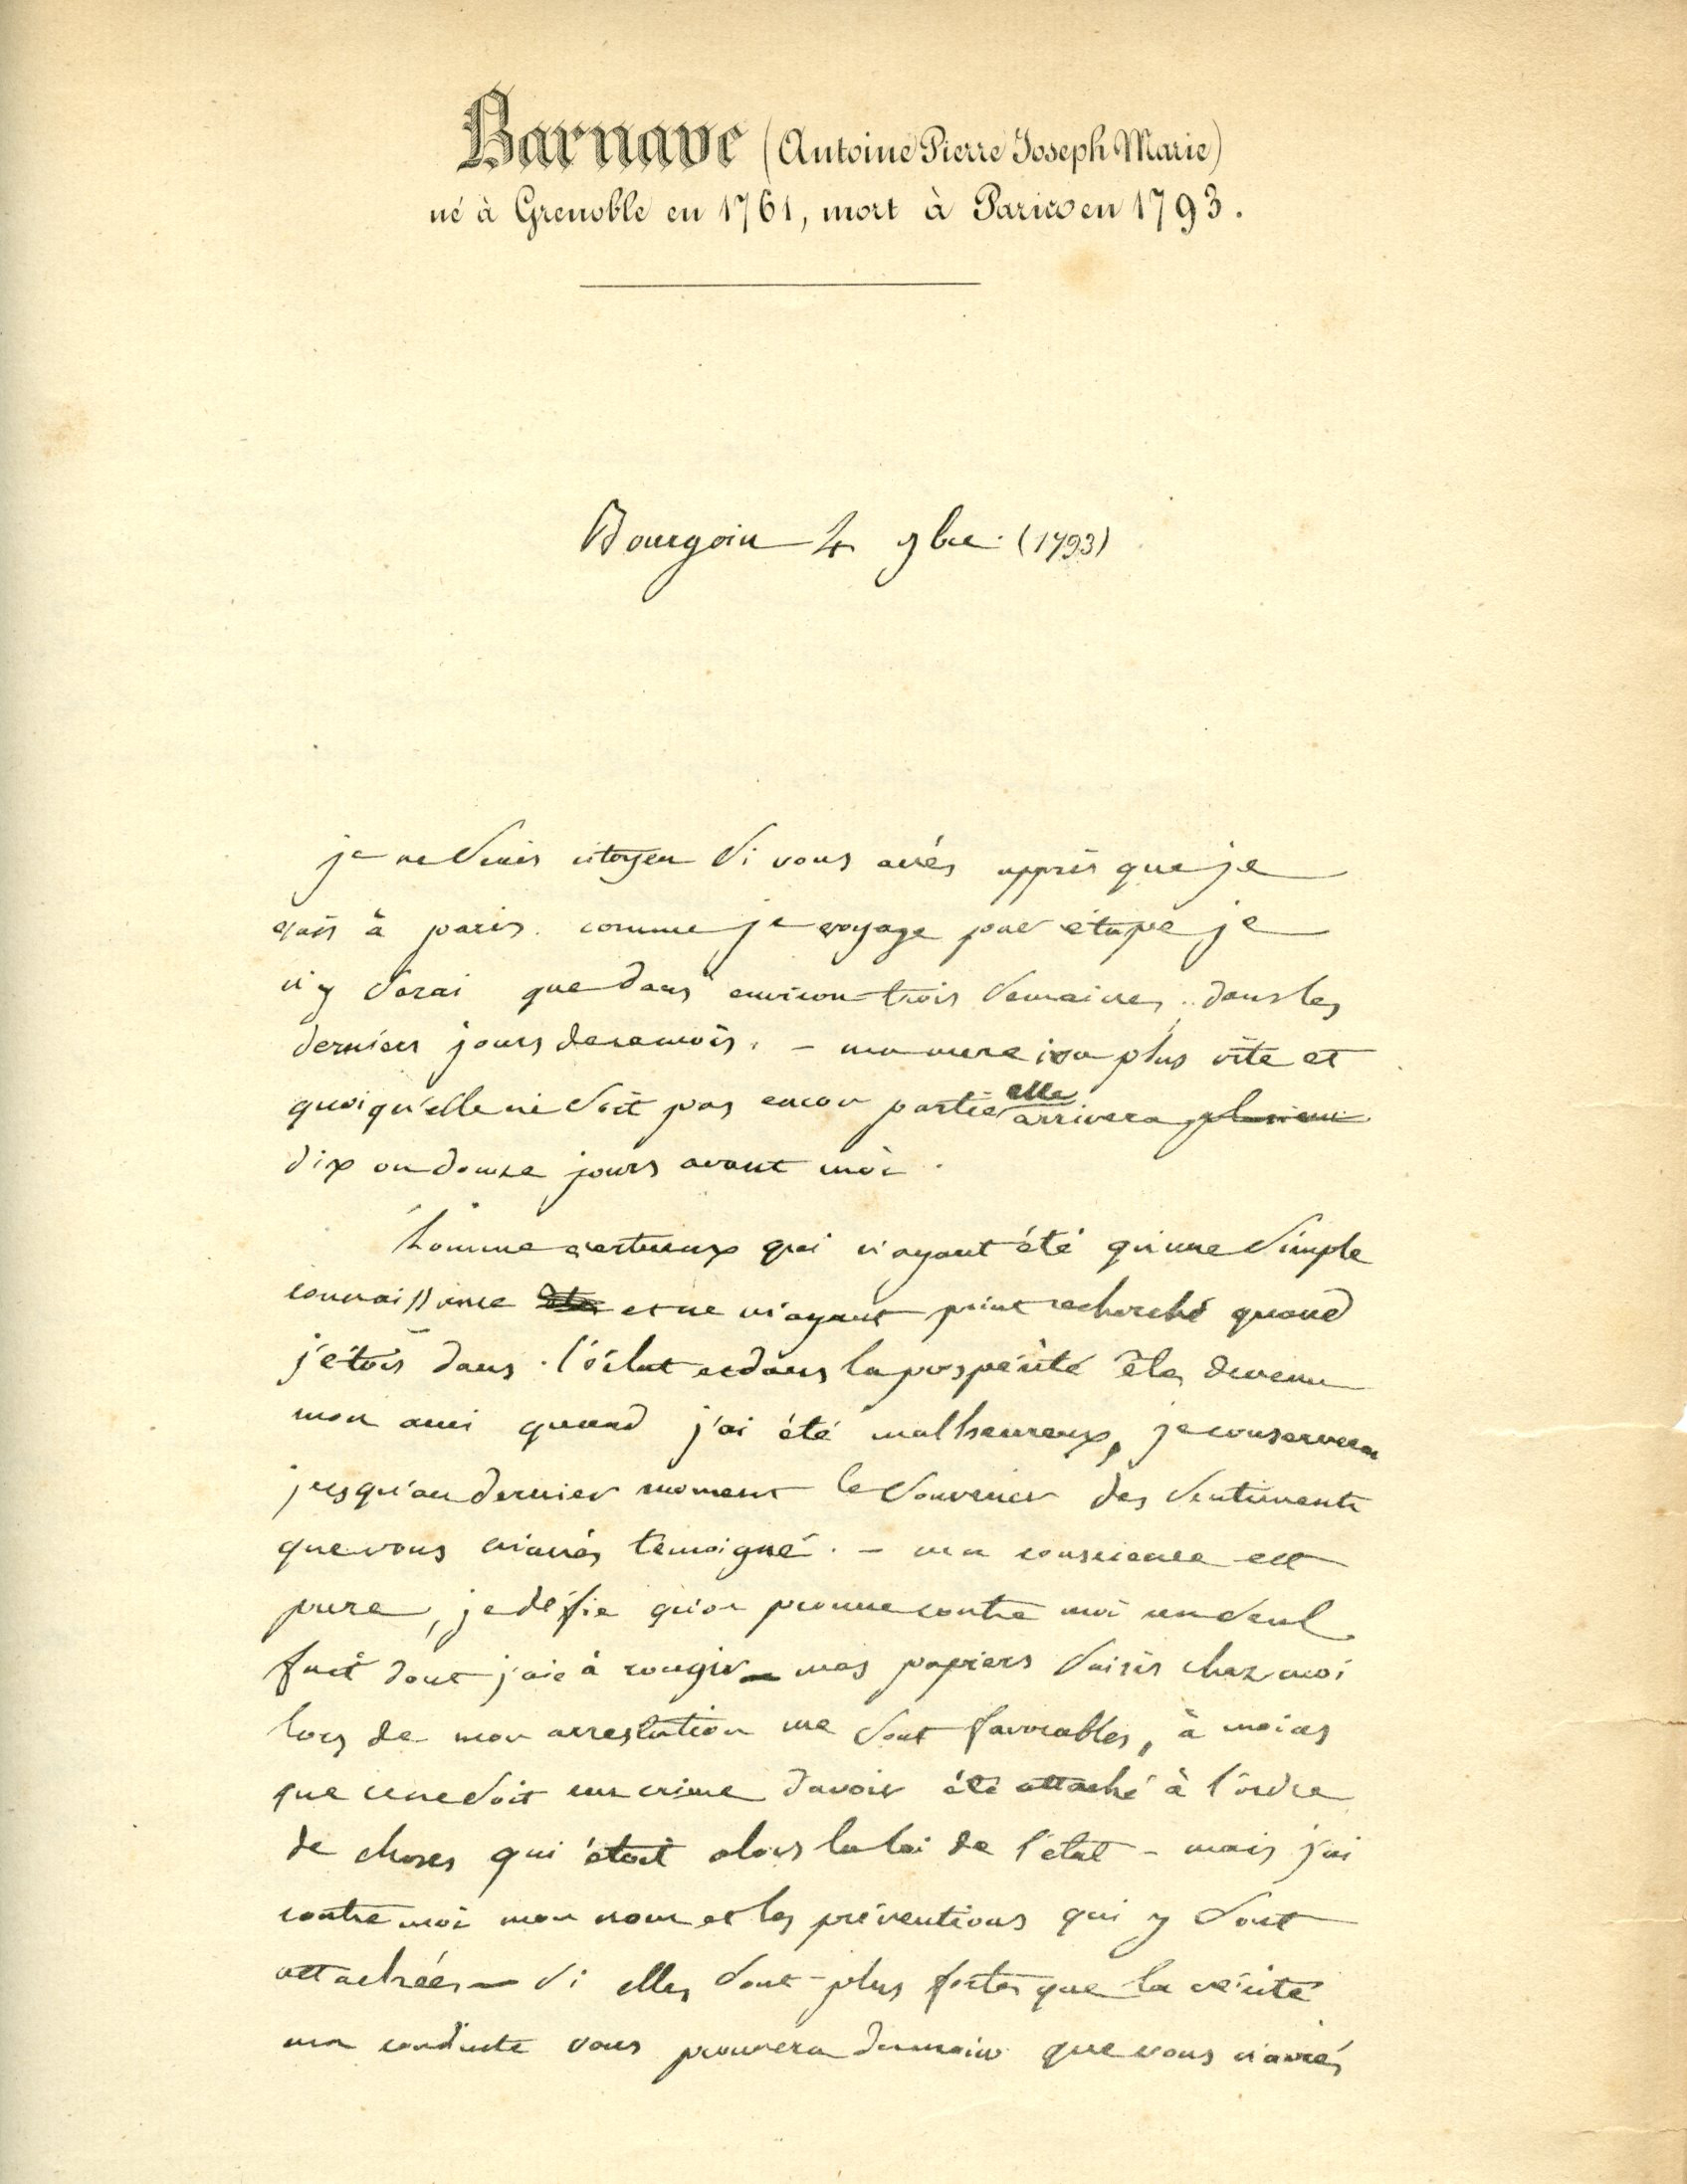 Barnave (Antoine Pierre Joseph Marie)
né à Grenoble en 1761, mort à Paris en 1793.
Bourgoin 4 9bre. (1793)
je ne sais citoyen si vous avés appris que je
vais à paris. comme je voyage par étape je
n'y serai que dans environ trois semaines, dans les
derniers jours de ce mois. - ma mere ira plus vite et
quoiqu'elle ne soit pas encor partie elle arrivera
dix ou douze jours avant moi.
homme vertueux qui n'ayant été qu'une simple
connaissance et ne m'ayant point recherché quand
j'étois dans l'éclat et dans la prospérité êtes devenu
mon ami quand j'ai été malheureux, je conserverai
jusqu'au dernier moment le souvenir des sentiments
que vous m'avés témoigné. - ma conscience est
pure, je défie qu'on prouve contre moi un seul
fait dont j'aie à rougir - mes papiers saisis chez moi
lors de mon arrestation me sont favorables, à moins
que ce ne soit un crime d'avoir été attaché à l'ordre
de choses qui étoit alors la loi de l'état - mais j'ai
contre moi mon nom et les préventions qui y sont
attachées - si elles sont plus fortes que la vérité
ma conduite vous prouvera du moins que vous n'avés